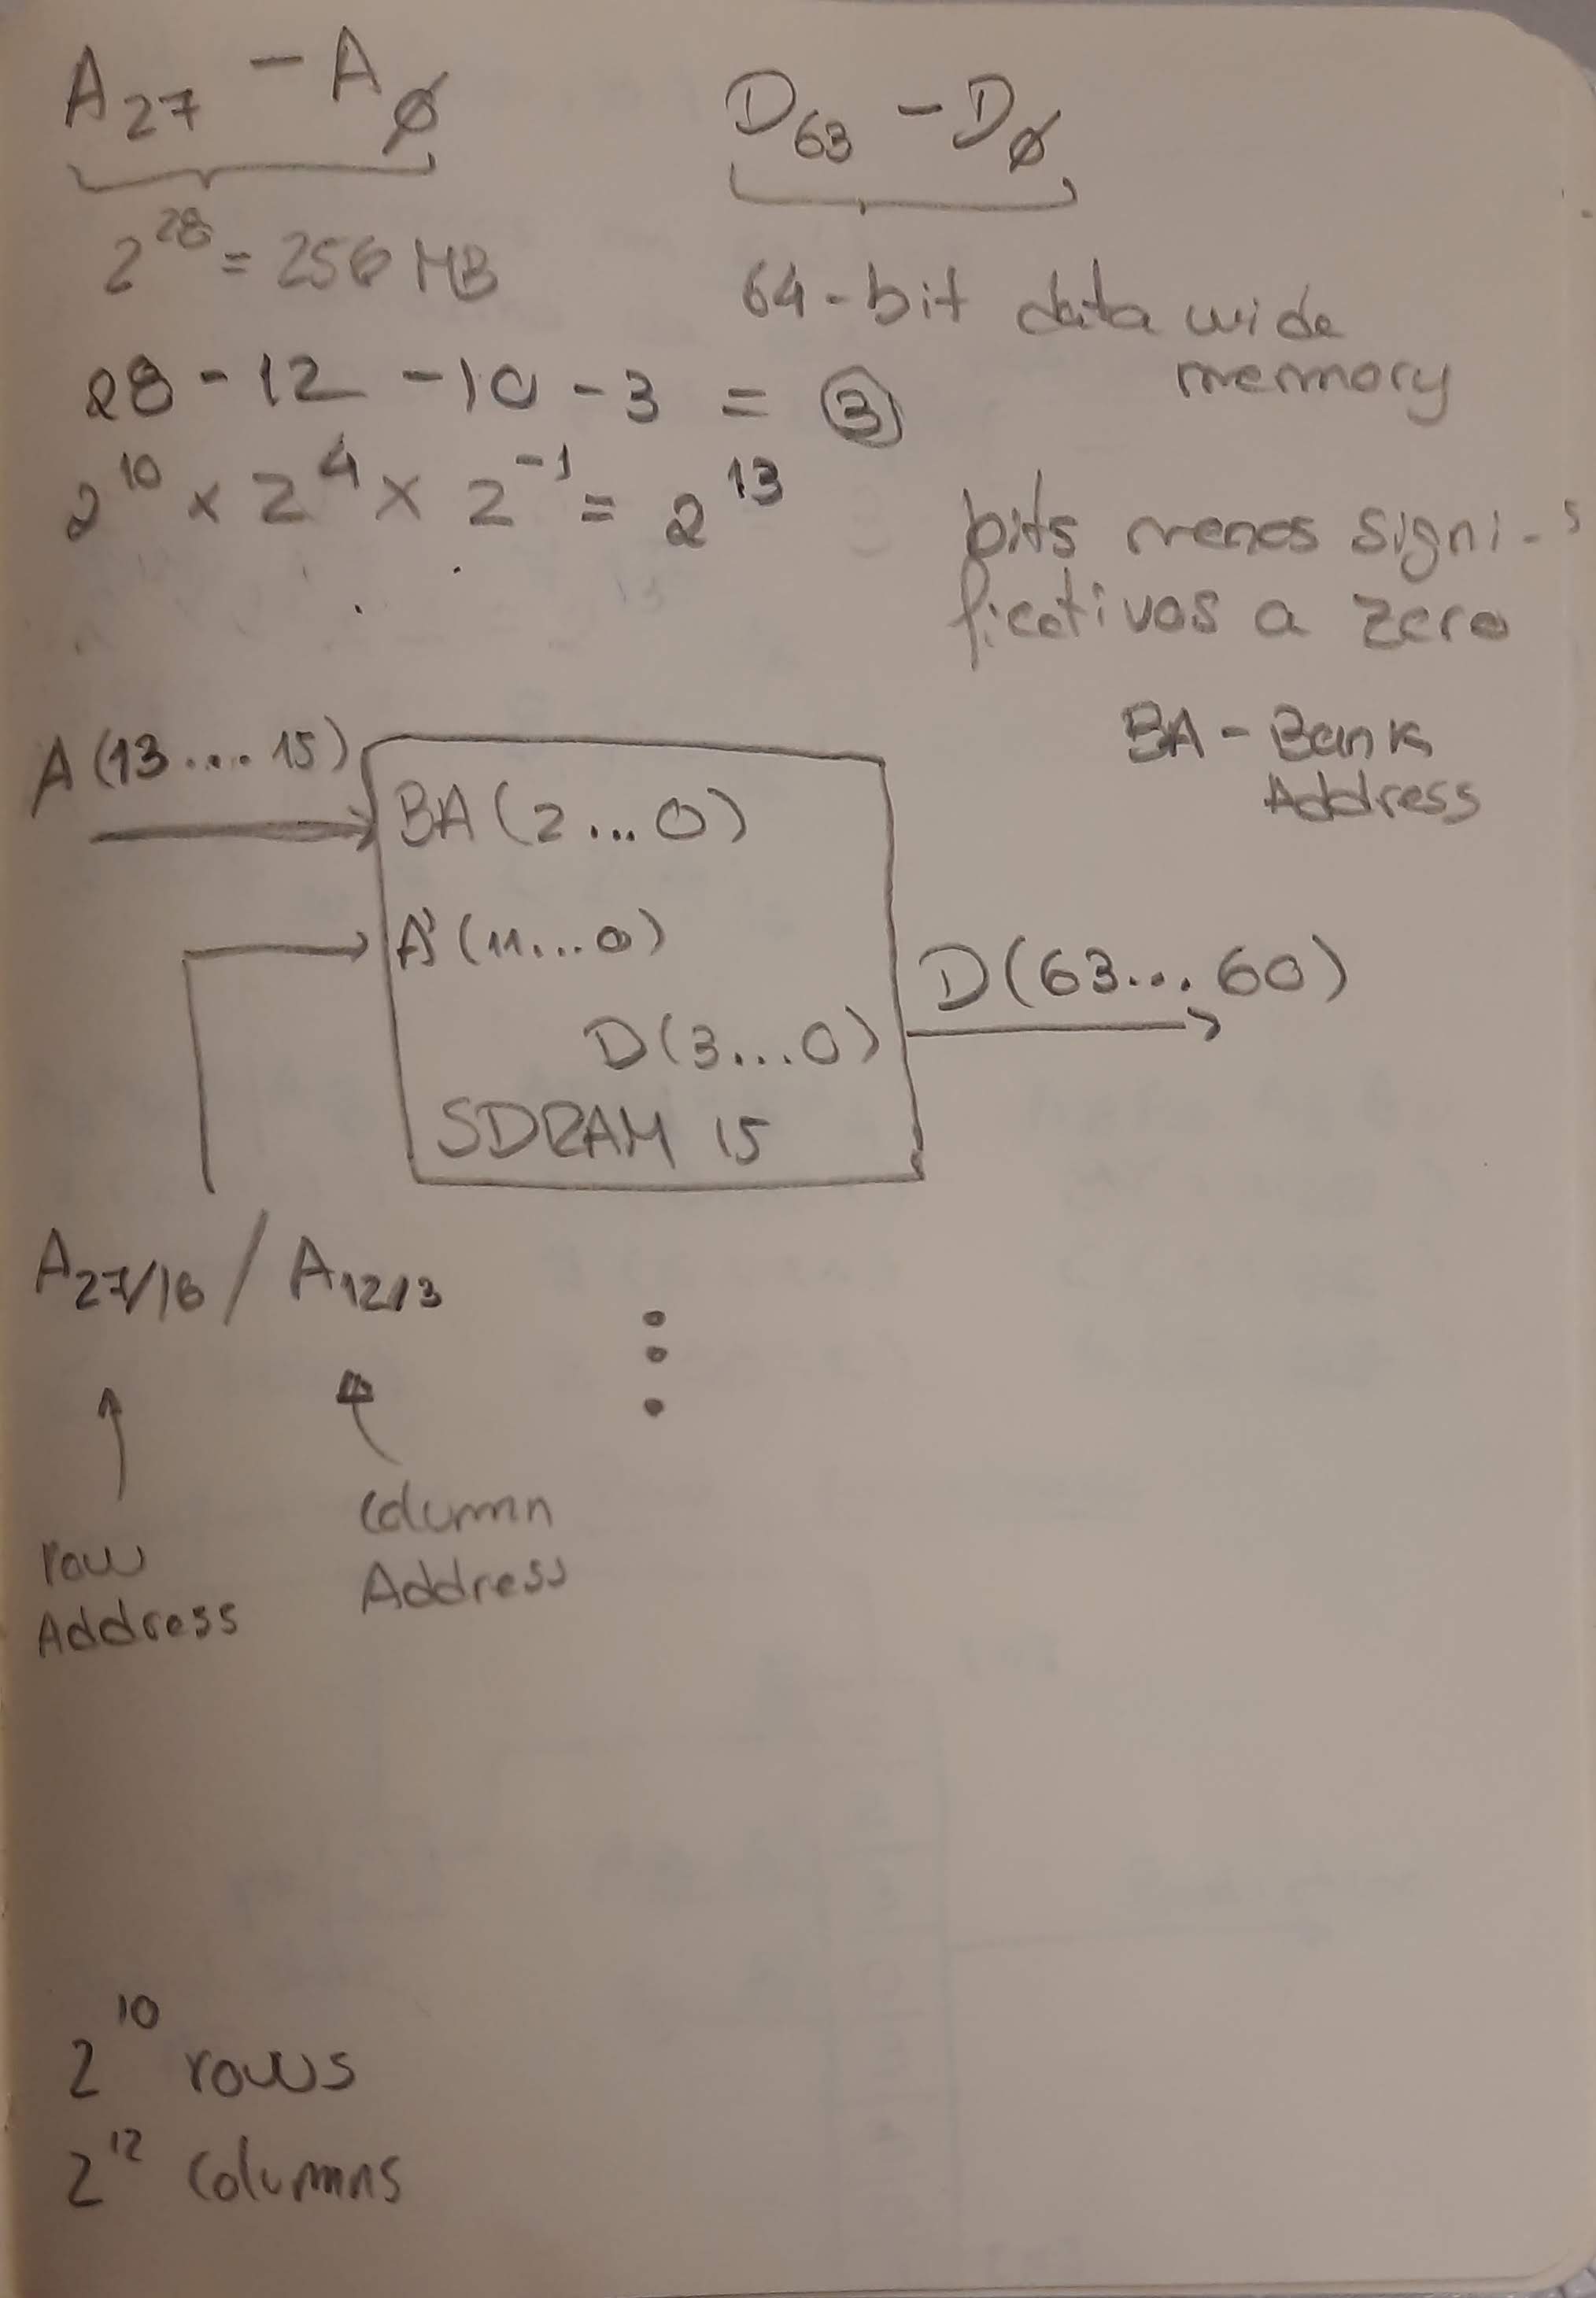 A27 - A0
D63 - D0
2^28 = 256 MB
64-bit data wide
memory
28 - 12 - 10 - 3 = 3
2^10 x 2^4 x 2^-1 = 2^13
bits menos signi-
ficativos a zero
BA - Bank
Address
A(13....15)
BA(2...0)
A'(11...0)
D(3...0)
D(63...60)
SDRAM 15
A27/16 / A12/3
row
Address
Column
Address
2^10 rows
2^12 columns